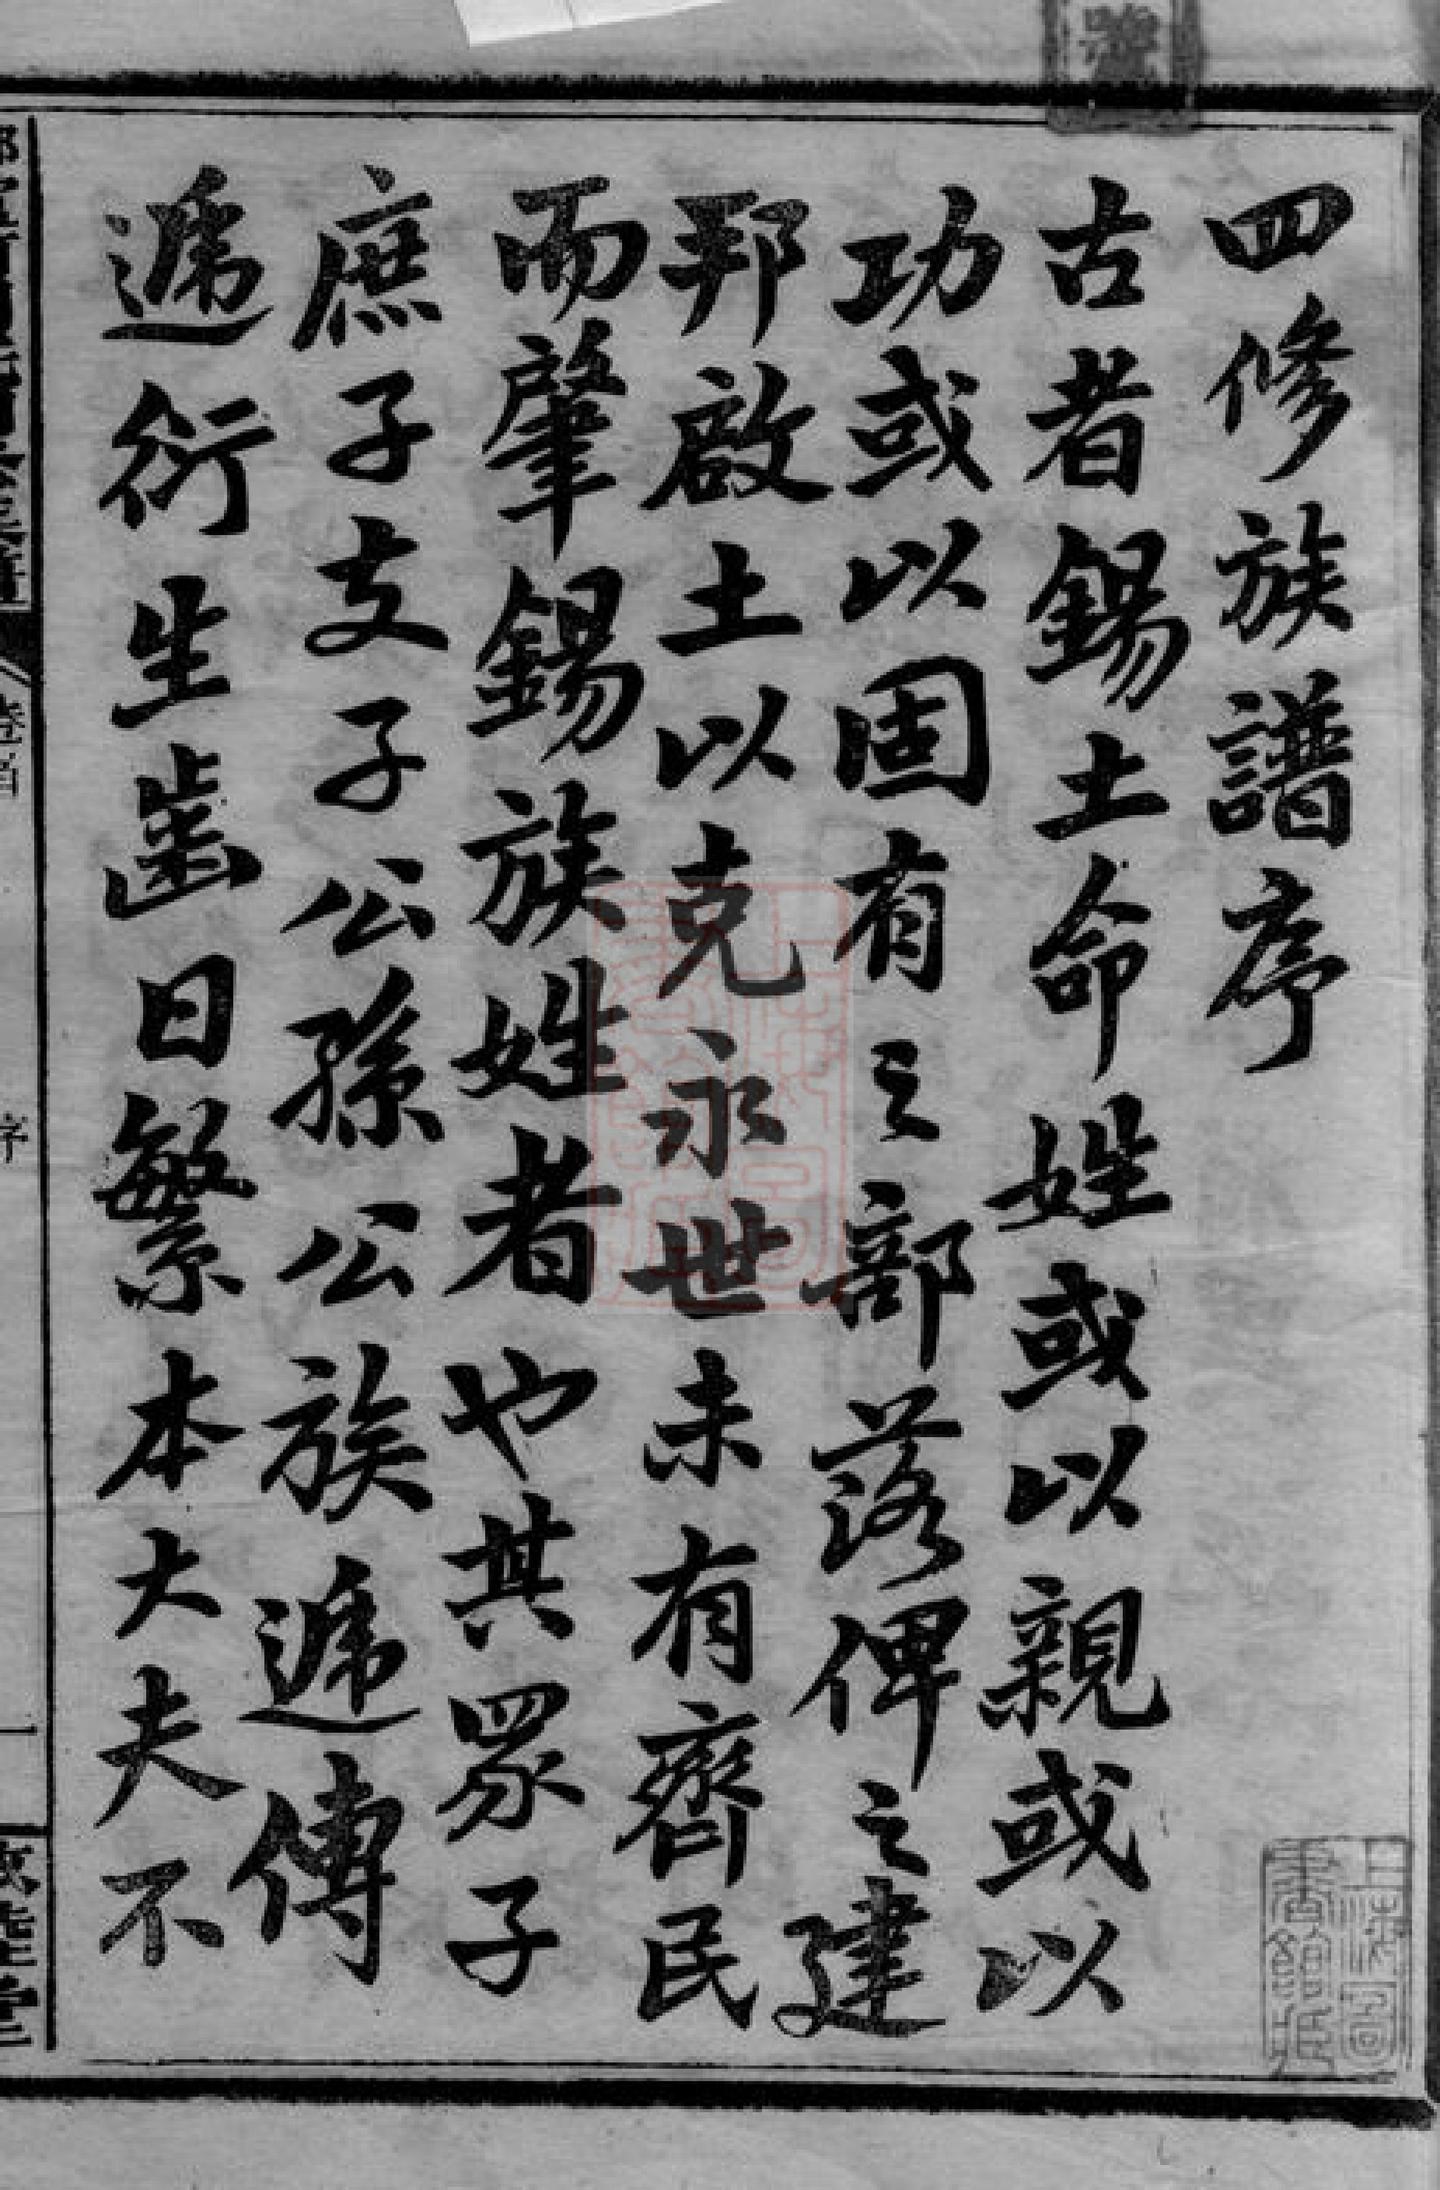 四修族譜序
古者錫土命姓或以親或以
功或以固有之部落俾之建
邦啟土以克永世未有齊民
而肇錫族姓者也其冢子
庶子支子公孫公族遞傳
遞衍生齒日繁本大夫不
卷首
序
一
上海圖書館藏